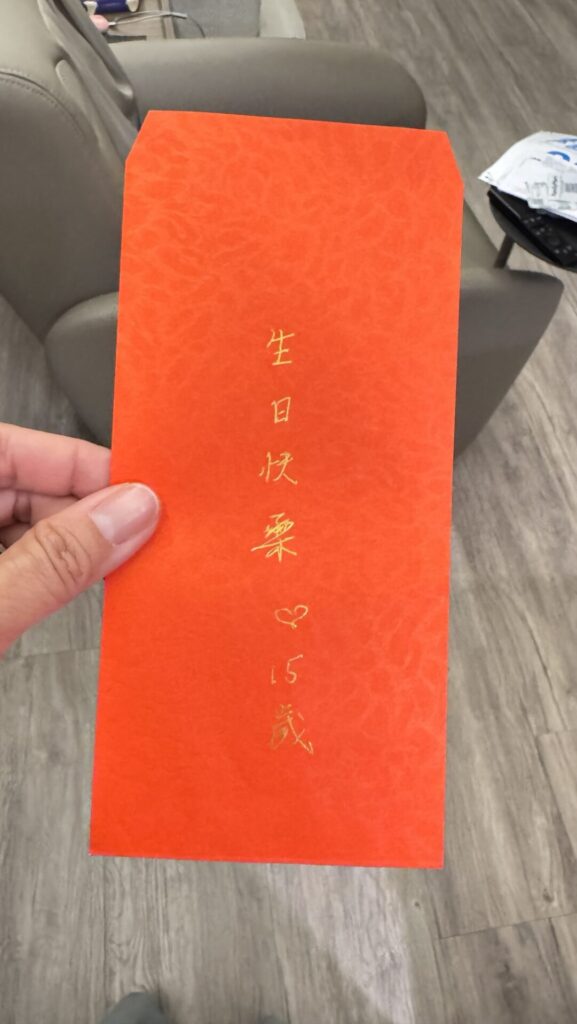 生日快樂♡15歲